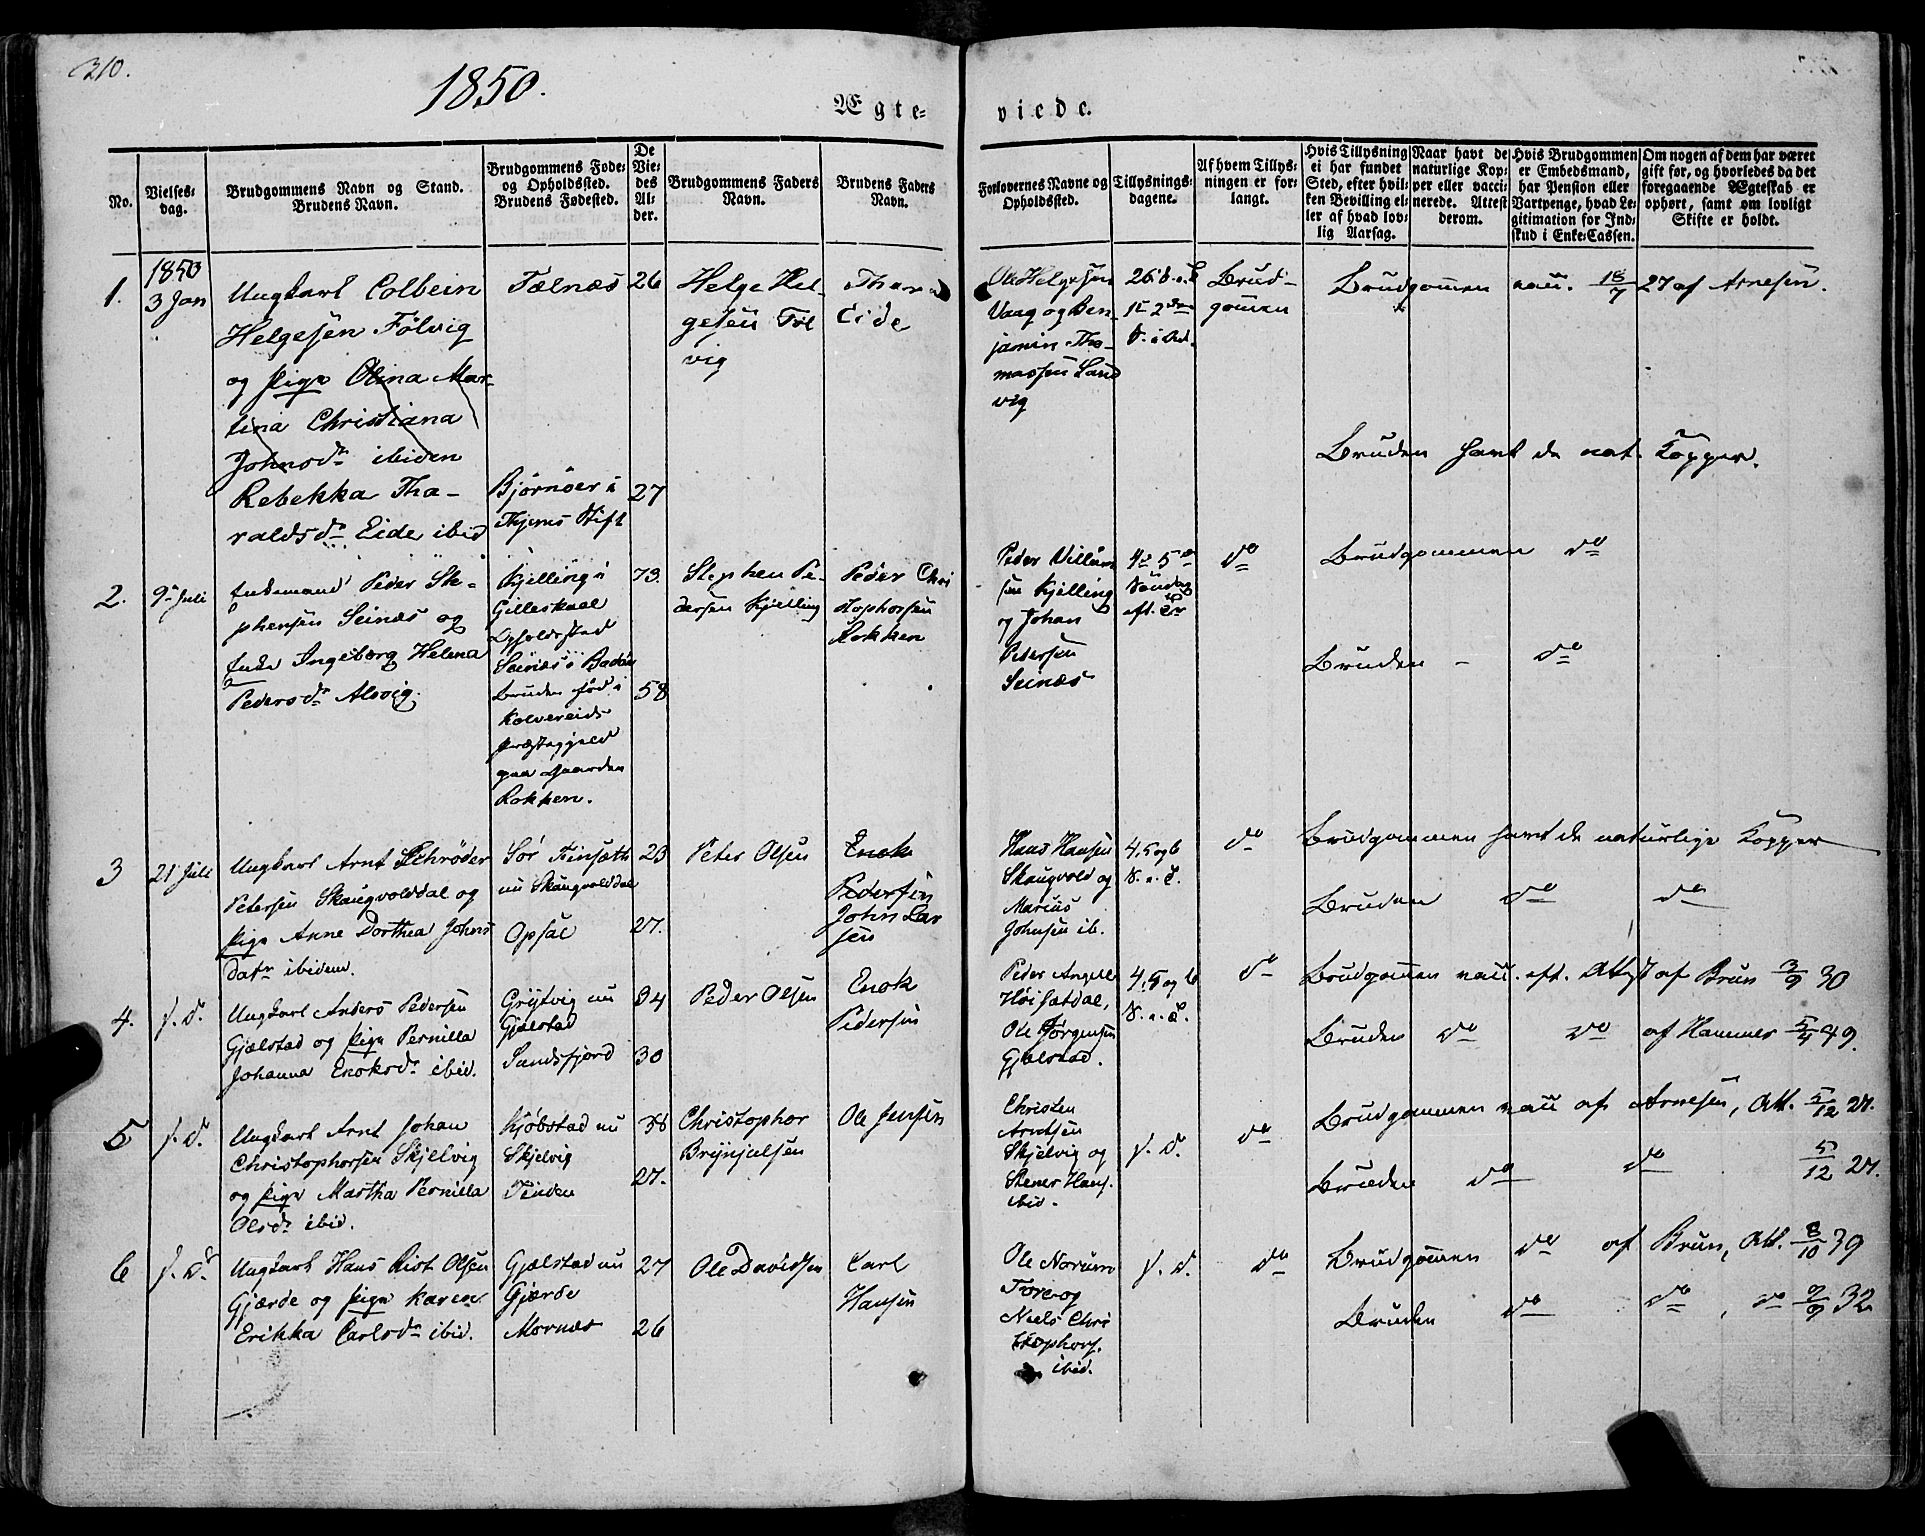 310.
1850.
Ægte=
viede.
No.
Vielses=
dag.
Brudgommens Navn og Stand.
Brudens Navn.
Brudgommens Føde=
og Opholdssted.
Brudens Fødested.
De
Vie=
des
Al=
der.
Brudgommens Faders
Navn.
Brudens Faders
Navn.
Forlovernes Navne og
Opholdssted.
Tillysnings=
dagene.
Af hvem Tillys=
ningen er for=
langt.
Hvis Tillysning
ei har fundet
Sted, efter hvil=
ken Bevilling el=
ler af hvad lov=
lig Aarsag.
Naar havt de
naturlige Kop=
per eller vacci=
nerede. Attest
derom.
Hvis Brudgommen
er Embedsmand,
har Pension eller
Vartpenge, hvad Le=
gitimation for Ind=
skud i Enke=Cassen.
Om nogen af dem har været
gift før, og hvorledes da det
foregaaende Ægteskab er
ophørt, samt om lovligt
Skifte er holdt.
1.
1850
3 Jan
Ungkarl Colbein
Helgesen Følvig
og Pige Olina Mar-
tina Christiana
Johnsdr ibiden
Rebekka Tha-
raldsdr Eide ibid
Tælnæs
Bjørnøer i
Thjems Stift
26
27
Helge Hel-
gesen Føl
vig
Thara
Eide
Ole Helgesen
Vaag og Ben-
jamin Tho-
massen Sand
vig
Brud-
gommen
Brudgommen vau. 18/7 27 af Arnesen.
Bruden havt de nat. Kopper.
2.
9de Juli
Enkemand Peder Ste-
phensen Seinæs og
Enke Ingeborg Helena
Pedersdr Alsvig.
Kjelling i
Gilleskaal
Opholdssted
Seinæs i Bodøe
Bruden fød i
Kolvereids
Præstegjeld
paa Gaarden
Rokken.
73.
58
Stephen Pe-
dersen Kjelling
Peder Chri
stophersen
Rokken
Peder Villum
sen Kjelling
og Johan
Petersen
Seinæs
4de 5te
Søndag
eft. Tr
do
Brudgommen do
Bruden - do
3
21 Juli
Ungkarl Arnt Schrøder
Petersen Skaugvolddal og
Pige Anne Dorthea Johns
datr ibidem.
Sør Finsæth
nu Skaugvolddal
Opsal
23
27.
Peter Olsen
Enok
Pedersen
John Lar
sen
Hans Hansen
Skaugvold og
Marius
Johnsen ib.
4, 5 og 6
S. e. T.
do
Brudgommen havt de naturlige Kopper
Bruden do do
4.
s. d.
Ungkarl Anders Pedersen
Gjælstad og Pige Pernilla
Johanna Enoksdr ibid.
Grytvig nu
Gjælstad
Sundsfjord
34
30
Peder Olsen
Enok
Pedersen
Peder Angell
Høisætdal,
Ole Jørgensen
Gjælstad.
4, 5 og 6
S. e. T.
do
Brudgommen vau. eft. Attest af Brun 3/9 30
Bruden do do af Hammer 5/4 49.
5
s. d.
Ungkarl Arnt Johan
Christophersen Skjelvig
og Pige Martha Pernilla
Olsdr ibid.
Kjøbstad nu
Skjelvig
Finden
36
27.
Christopher
Brynjulsen
Ole Jensen
Christen
Arntsen
Skjelvig og
Stener Hans.
ibid.
s. d.
do
Brudgommen vau af Arnesen, Att. 5/12 27.
Bruden do do 5/12 27.
6
s. d.
Ungkarl Hans Rist Olsen
Gjærde og Pige Karen
Erikka Carlsdr ibid.
Gjælstad nu
Gjærde
Mornæs
27
26
Ole Davidsen
Carl
Hansen
Ole Norum
Tore og
Niels Chri
stophers.
ibid.
s. d.
do
Brudgommen do af Brun, Att. 8/10 39
Bruden do do, do 9/9 32